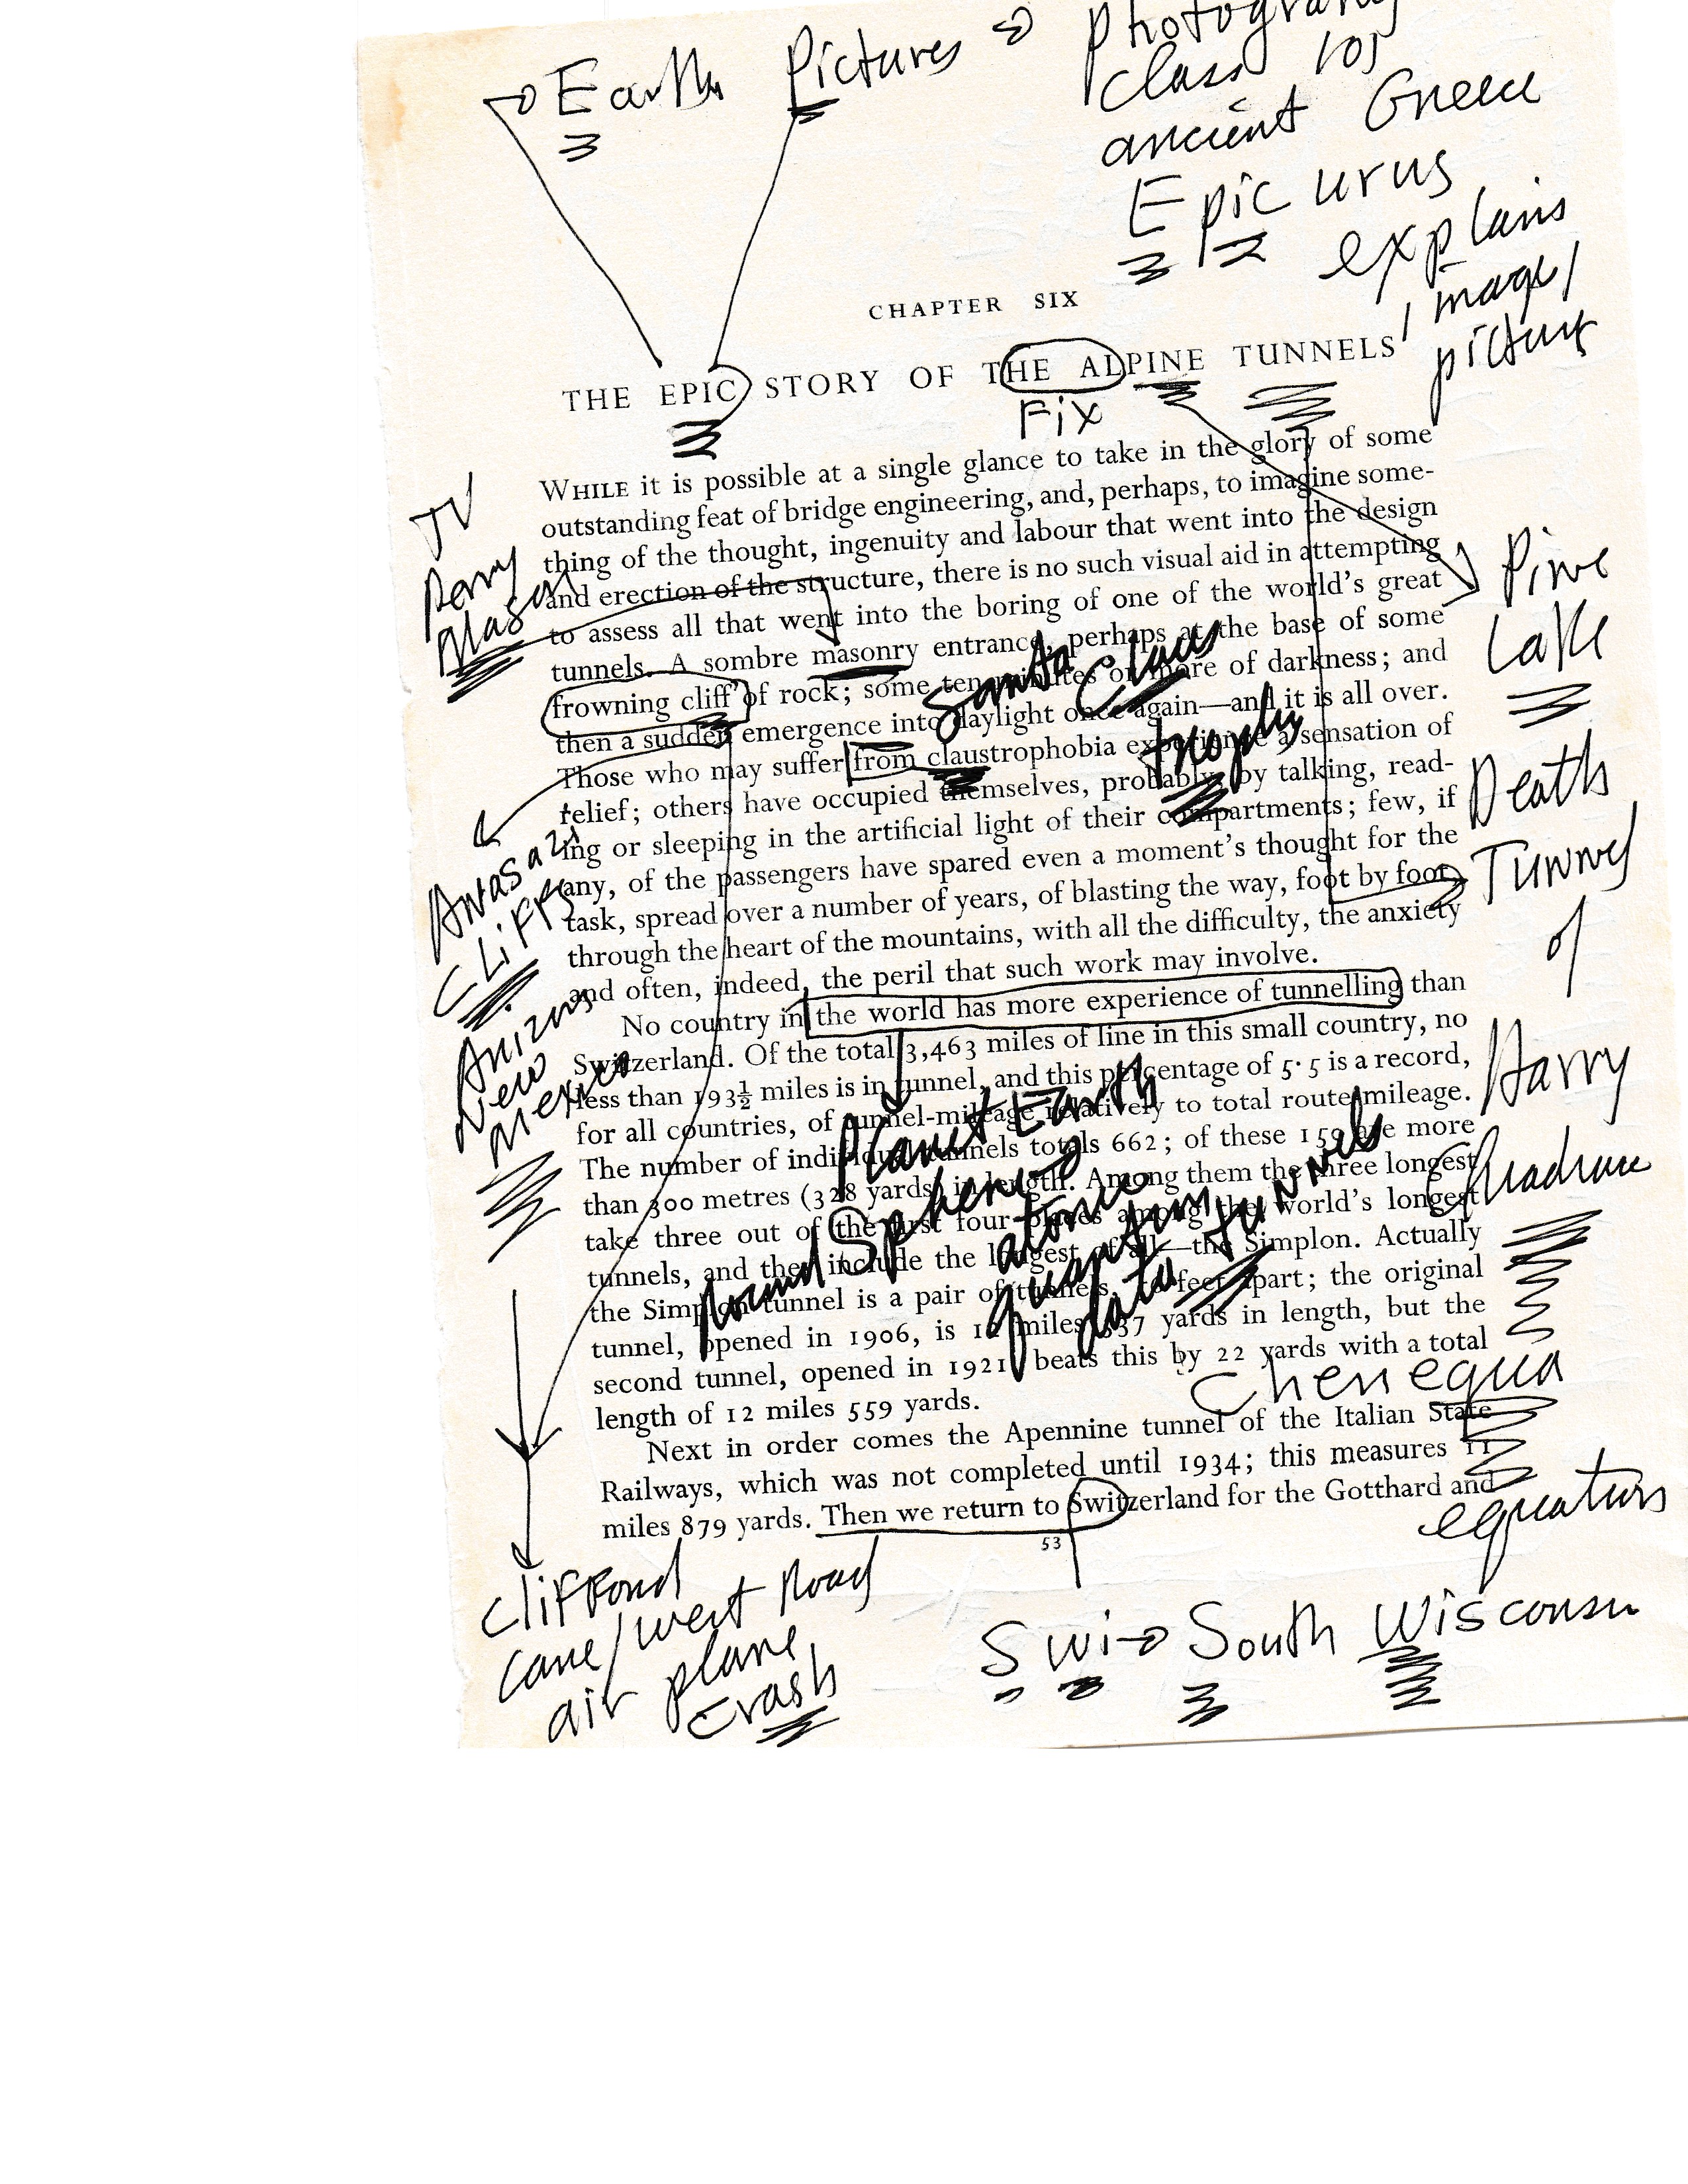 Earth Pictures
class 101
ancient Greece
Epicurus
explains
image/
picture
CHAPTER SIX
THE EPIC STORY OF THE ALPINE TUNNELS
Fix
WHILE it is possible at a single glance to take in the glory of some
outstanding feat of bridge engineering, and, perhaps, to imagine some-
thing of the thought, ingenuity and labour that went into the design
and erection of the structure, there is no such visual aid in attempting
to assess all that went into the boring of one of the world's great
tunnels. A sombre masonry entrance, perhaps at the base of some
frowning cliff of rock; some ten minutes or more of darkness; and
then a sudden emergence into daylight once again—and it is all over.
Those who may suffer from claustrophobia experience a sensation of
relief; others have occupied themselves, probably by talking, read-
ing or sleeping in the artificial light of their compartments; few, if
any, of the passengers have spared even a moment's thought for the
task, spread over a number of years, of blasting the way, foot by foot,
through the heart of the mountains, with all the difficulty, the anxiety
and often, indeed, the peril that such work may involve.
No country in the world has more experience of tunnelling than
Switzerland. Of the total 3,463 miles of line in this small country, no
less than 193½ miles is in tunnel, and this percentage of 5·5 is a record,
for all countries, of tunnel-mileage relatively to total route mileage.
The number of individual tunnels totals 662; of these 159 are more
than 300 metres (328 yards) in length. Among them the three longest
take three out of the first four places among the world's longest
tunnels, and they include the longest of all—the Simplon. Actually
the Simplon tunnel is a pair of tunnels, feet apart; the original
tunnel, opened in 1906, is 12 miles 537 yards in length, but the
second tunnel, opened in 1921, beats this by 22 yards with a total
length of 12 miles 559 yards.
Next in order comes the Apennine tunnel of the Italian State
Railways, which was not completed until 1934; this measures 11
miles 879 yards. Then we return to Switzerland for the Gotthard and
53
TV
Perry
Mason
Anasazi
Cliffs
Arizona
New
Mexico
Santa Claus
trophy
Planet Earth
round Sphere
atomic
quantum
data tunnels
Pine
Lake
Death
Tunnel
of
Harry
Quadracci
Chenequa
equations
Clifford
cane/west Road
air plane
crash
Swi South Wisconsin